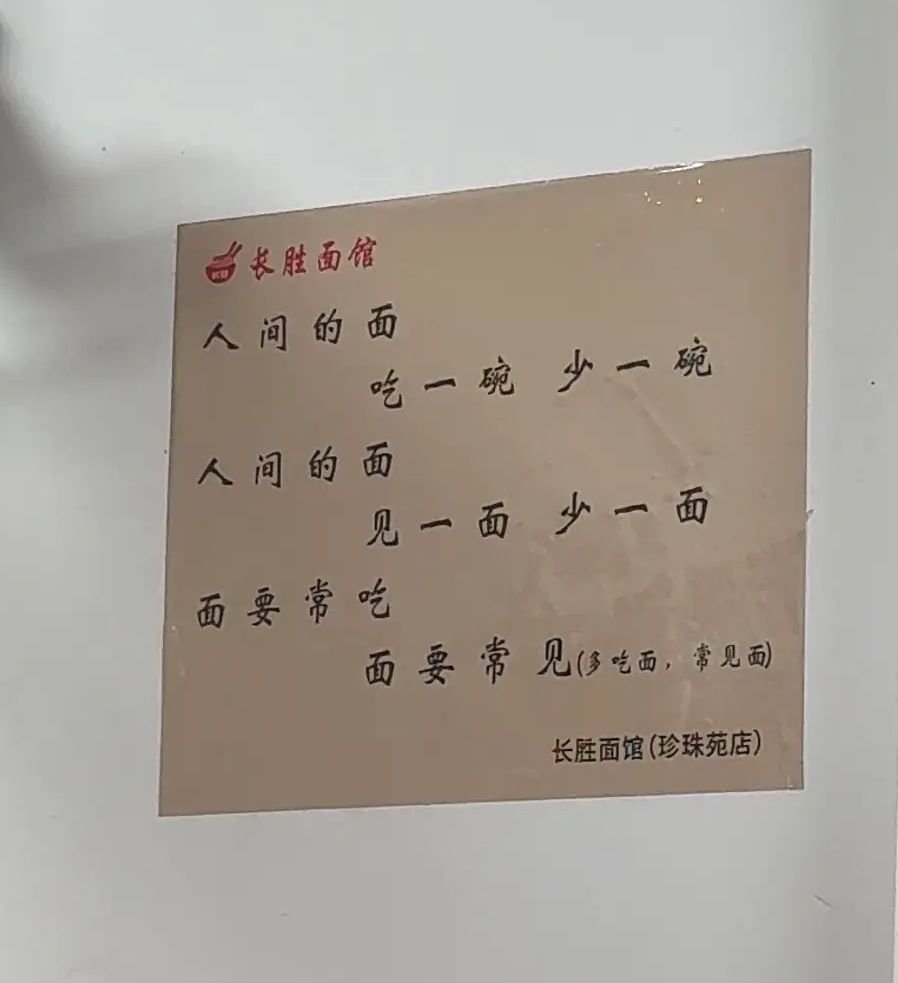 长胜面馆
人间的面
吃一碗 少一碗
人间的面
见一面 少一面
面要常吃
面要常见(多吃面，常见面)
长胜面馆(珍珠苑店)